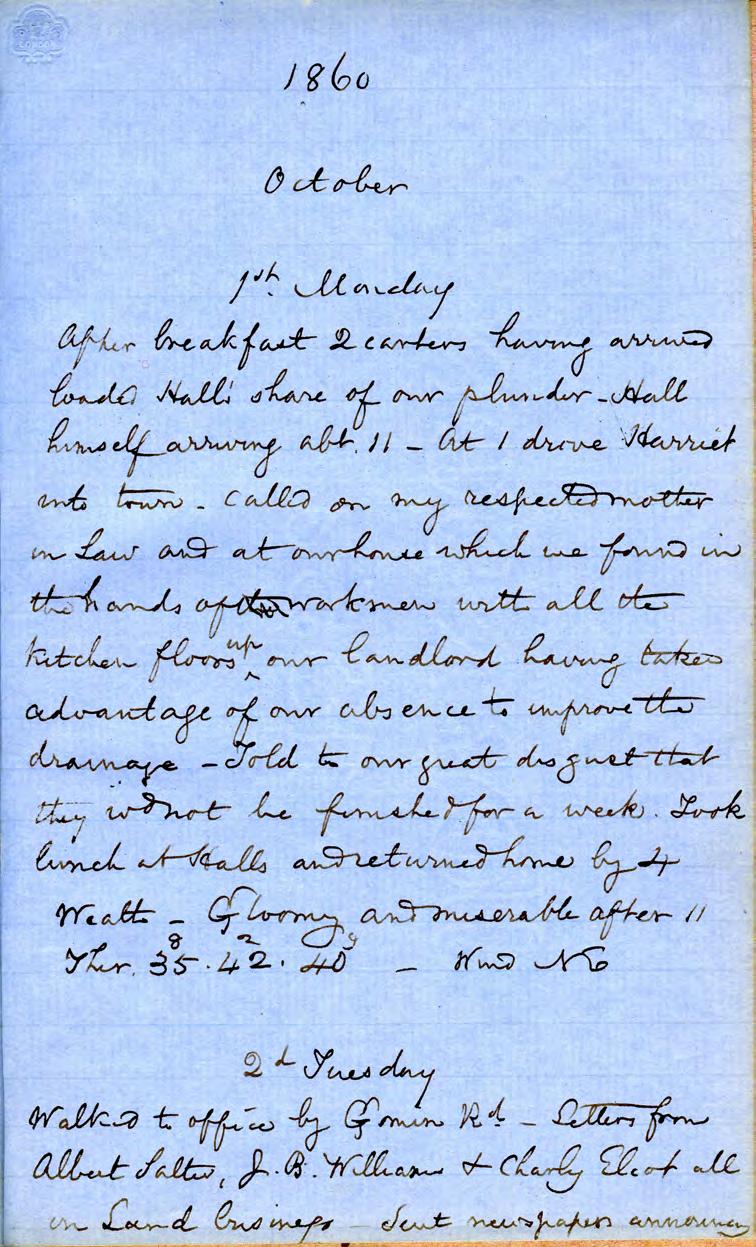 LONDON
1860
October
1st. Monday
After breakfast 2 carters having arrived
loaded Hall's share of our plunder - Hall
himself arriving abt. 11 - At 1 drove Harriet
into town - called on my respected mother
in Law and at our house which we found in
the hands of the workmen with all the
kitchen floors up our landlord having taken
advantage of our absence to improve the
drainage - Told to our great disgust that
they wd not be finished for a week. Took
lunch at Halls and returned home by 4
Weath - Gloomy and miserable after 11
Ther. 35 8. 42 2. 40 9 - Wind NE
2d Tuesday
Walked to office by Gomin Rd. - Letters from
Albert Salter, J. B. Williams & Charly Eliot all
on Land business - Sent newspapers